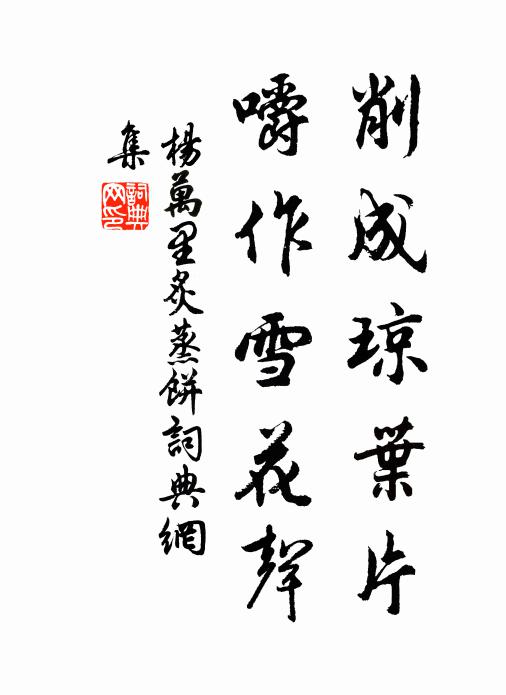 削成琼葉片
嚼作雪花聲
楊萬里炙蒸餅詞典網
集
詞典
网印